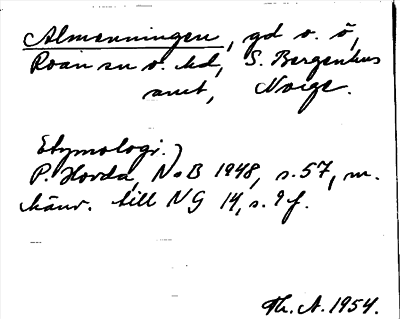 Almenningen, gd o. ö,
Roan sn o. hd, S. Bergenhus
amt, Norge.
Etymologi.)
P. Hovda, NoB 1948, s. 57, m.
hänv. till NG 14, s. 9 f.
Th. A. 1954.